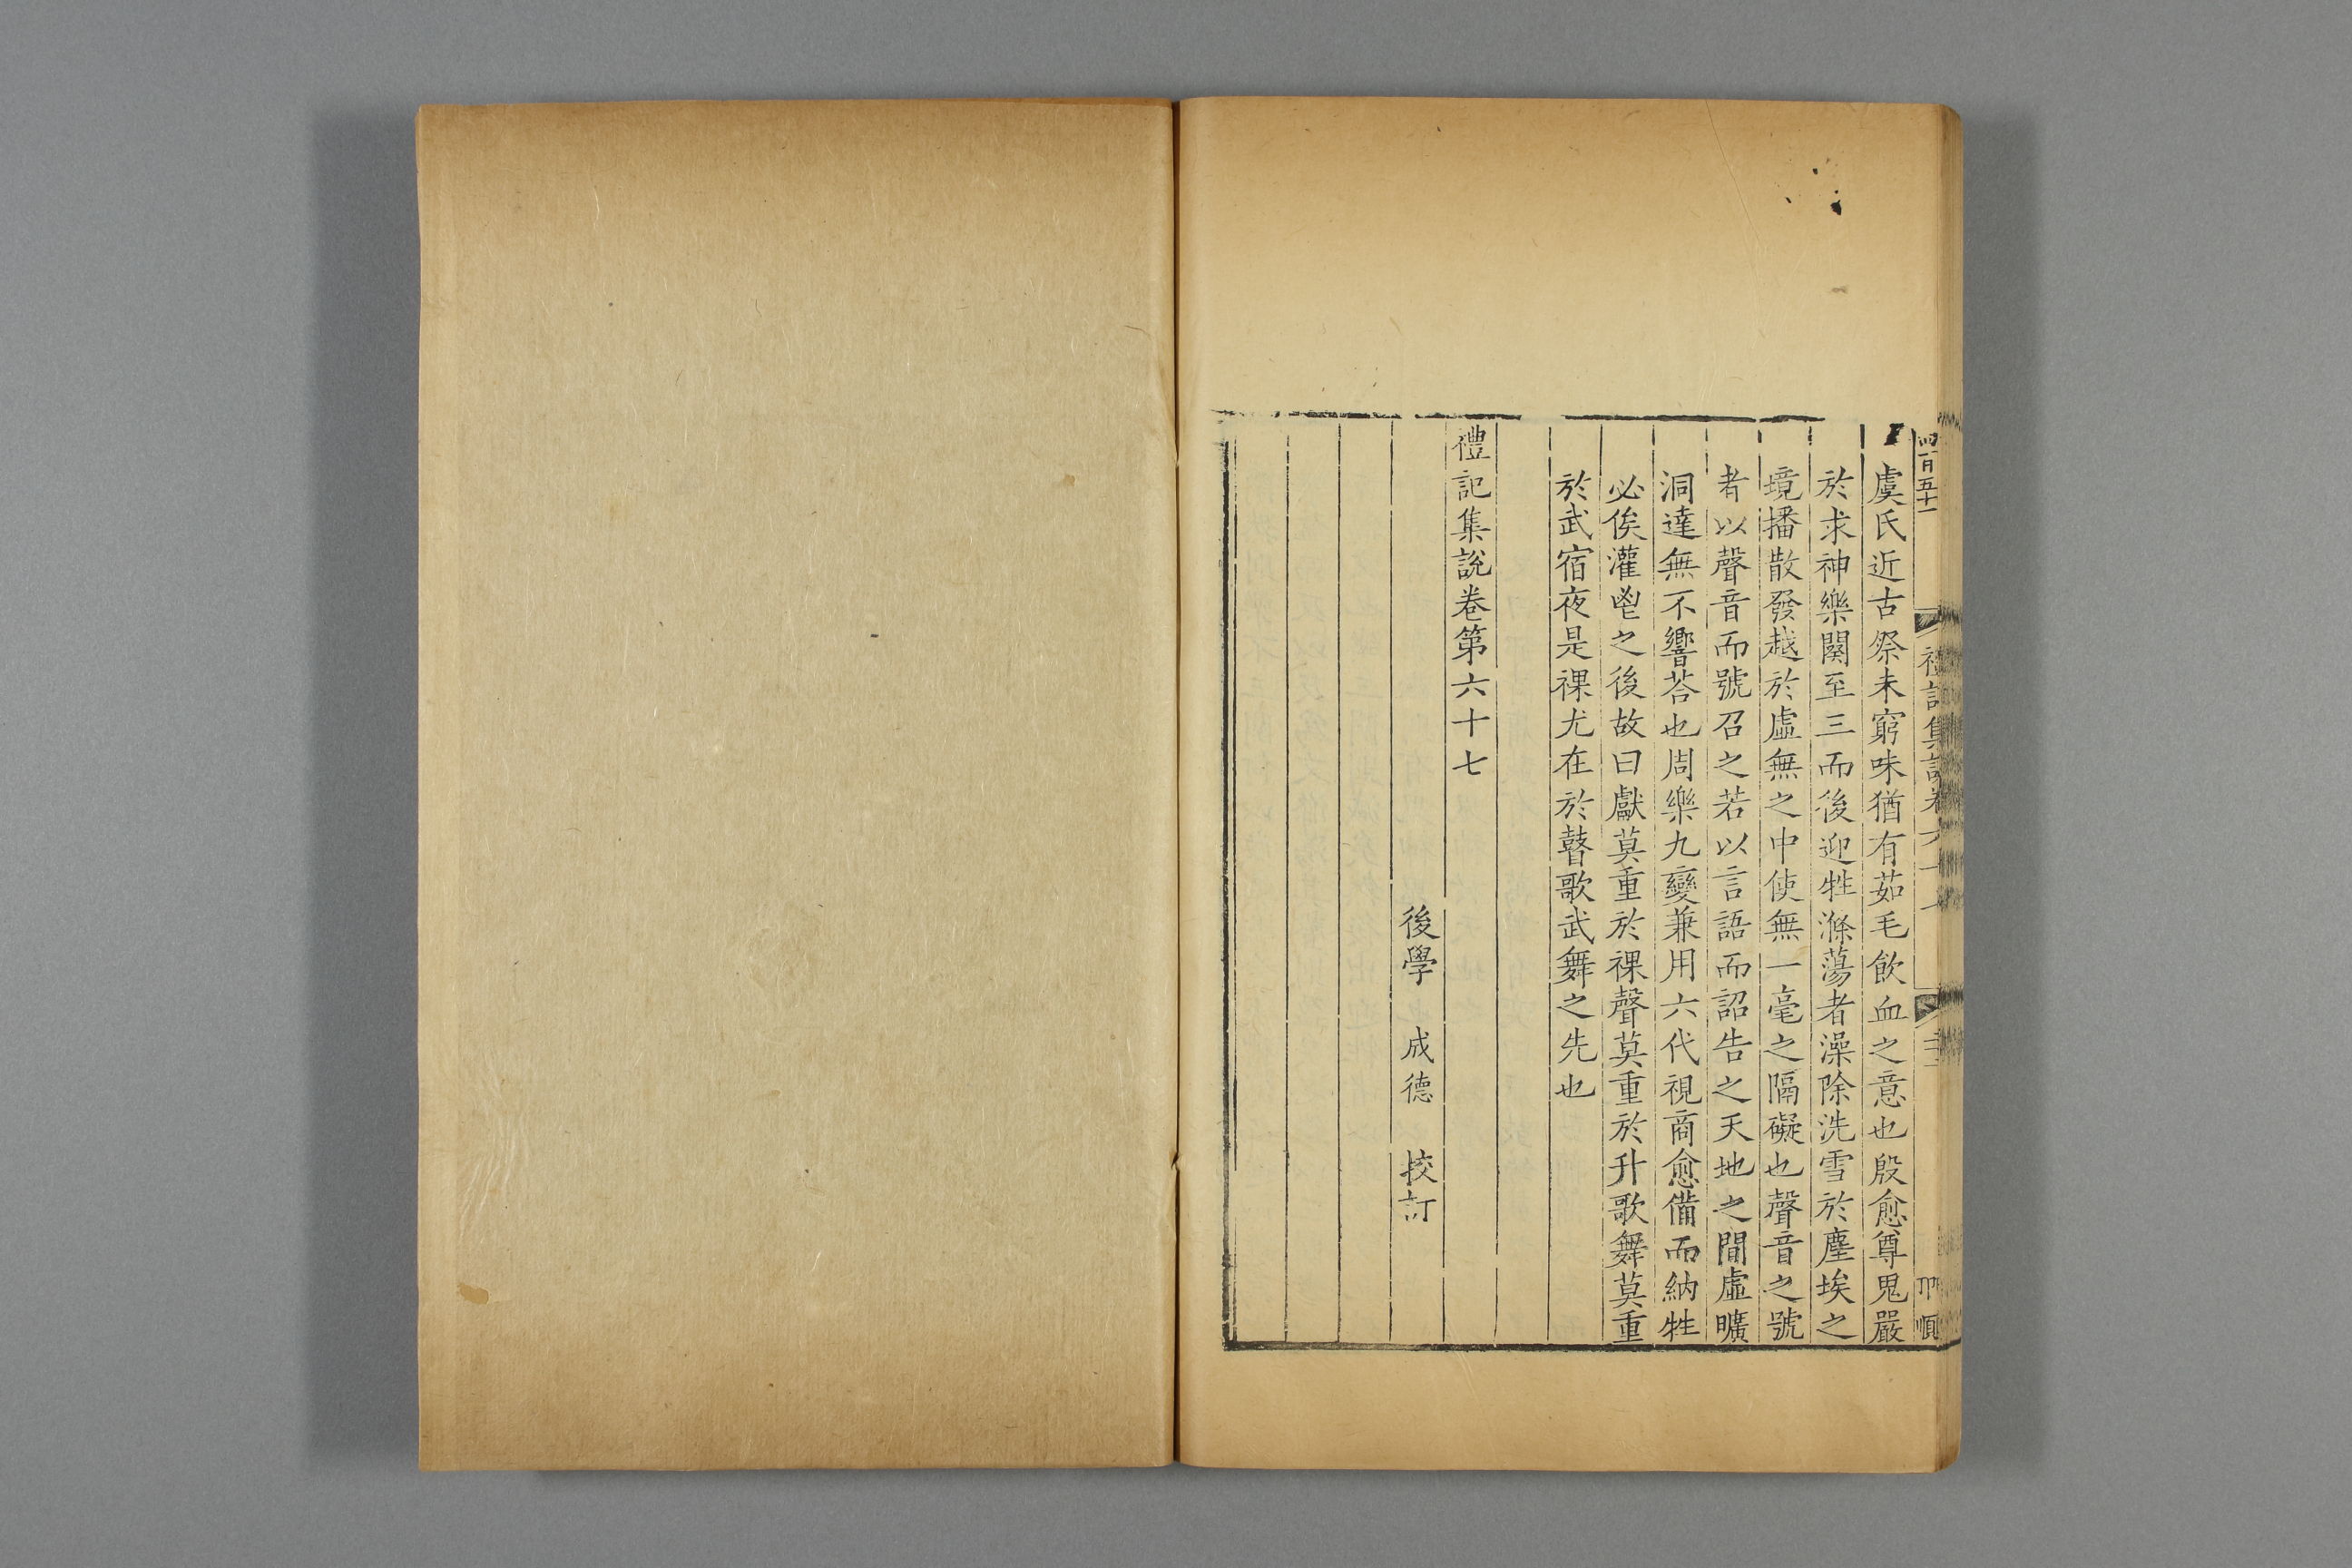 四百五十一
禮記集說卷六十七
虞氏近古祭未窮味猶有茹毛飲血之意也殷愈尊鬼嚴
於求神樂闋至三而後迎牲滌蕩者澡除洗雪於塵埃之
境播散發越於虛無之中使無一毫之隔礙也聲音之號
者以聲音而號召之若以言語而詔告之天地之間虛曠
洞達無不響荅也周樂九變兼用六代視商愈備而納牲
必俟灌鬯之後故曰獻莫重於祼聲莫重於升歌舞莫重
於武宿夜是祼尤在於瞽歌武舞之先也
禮記集說卷第六十七
後學 成德 挍訂